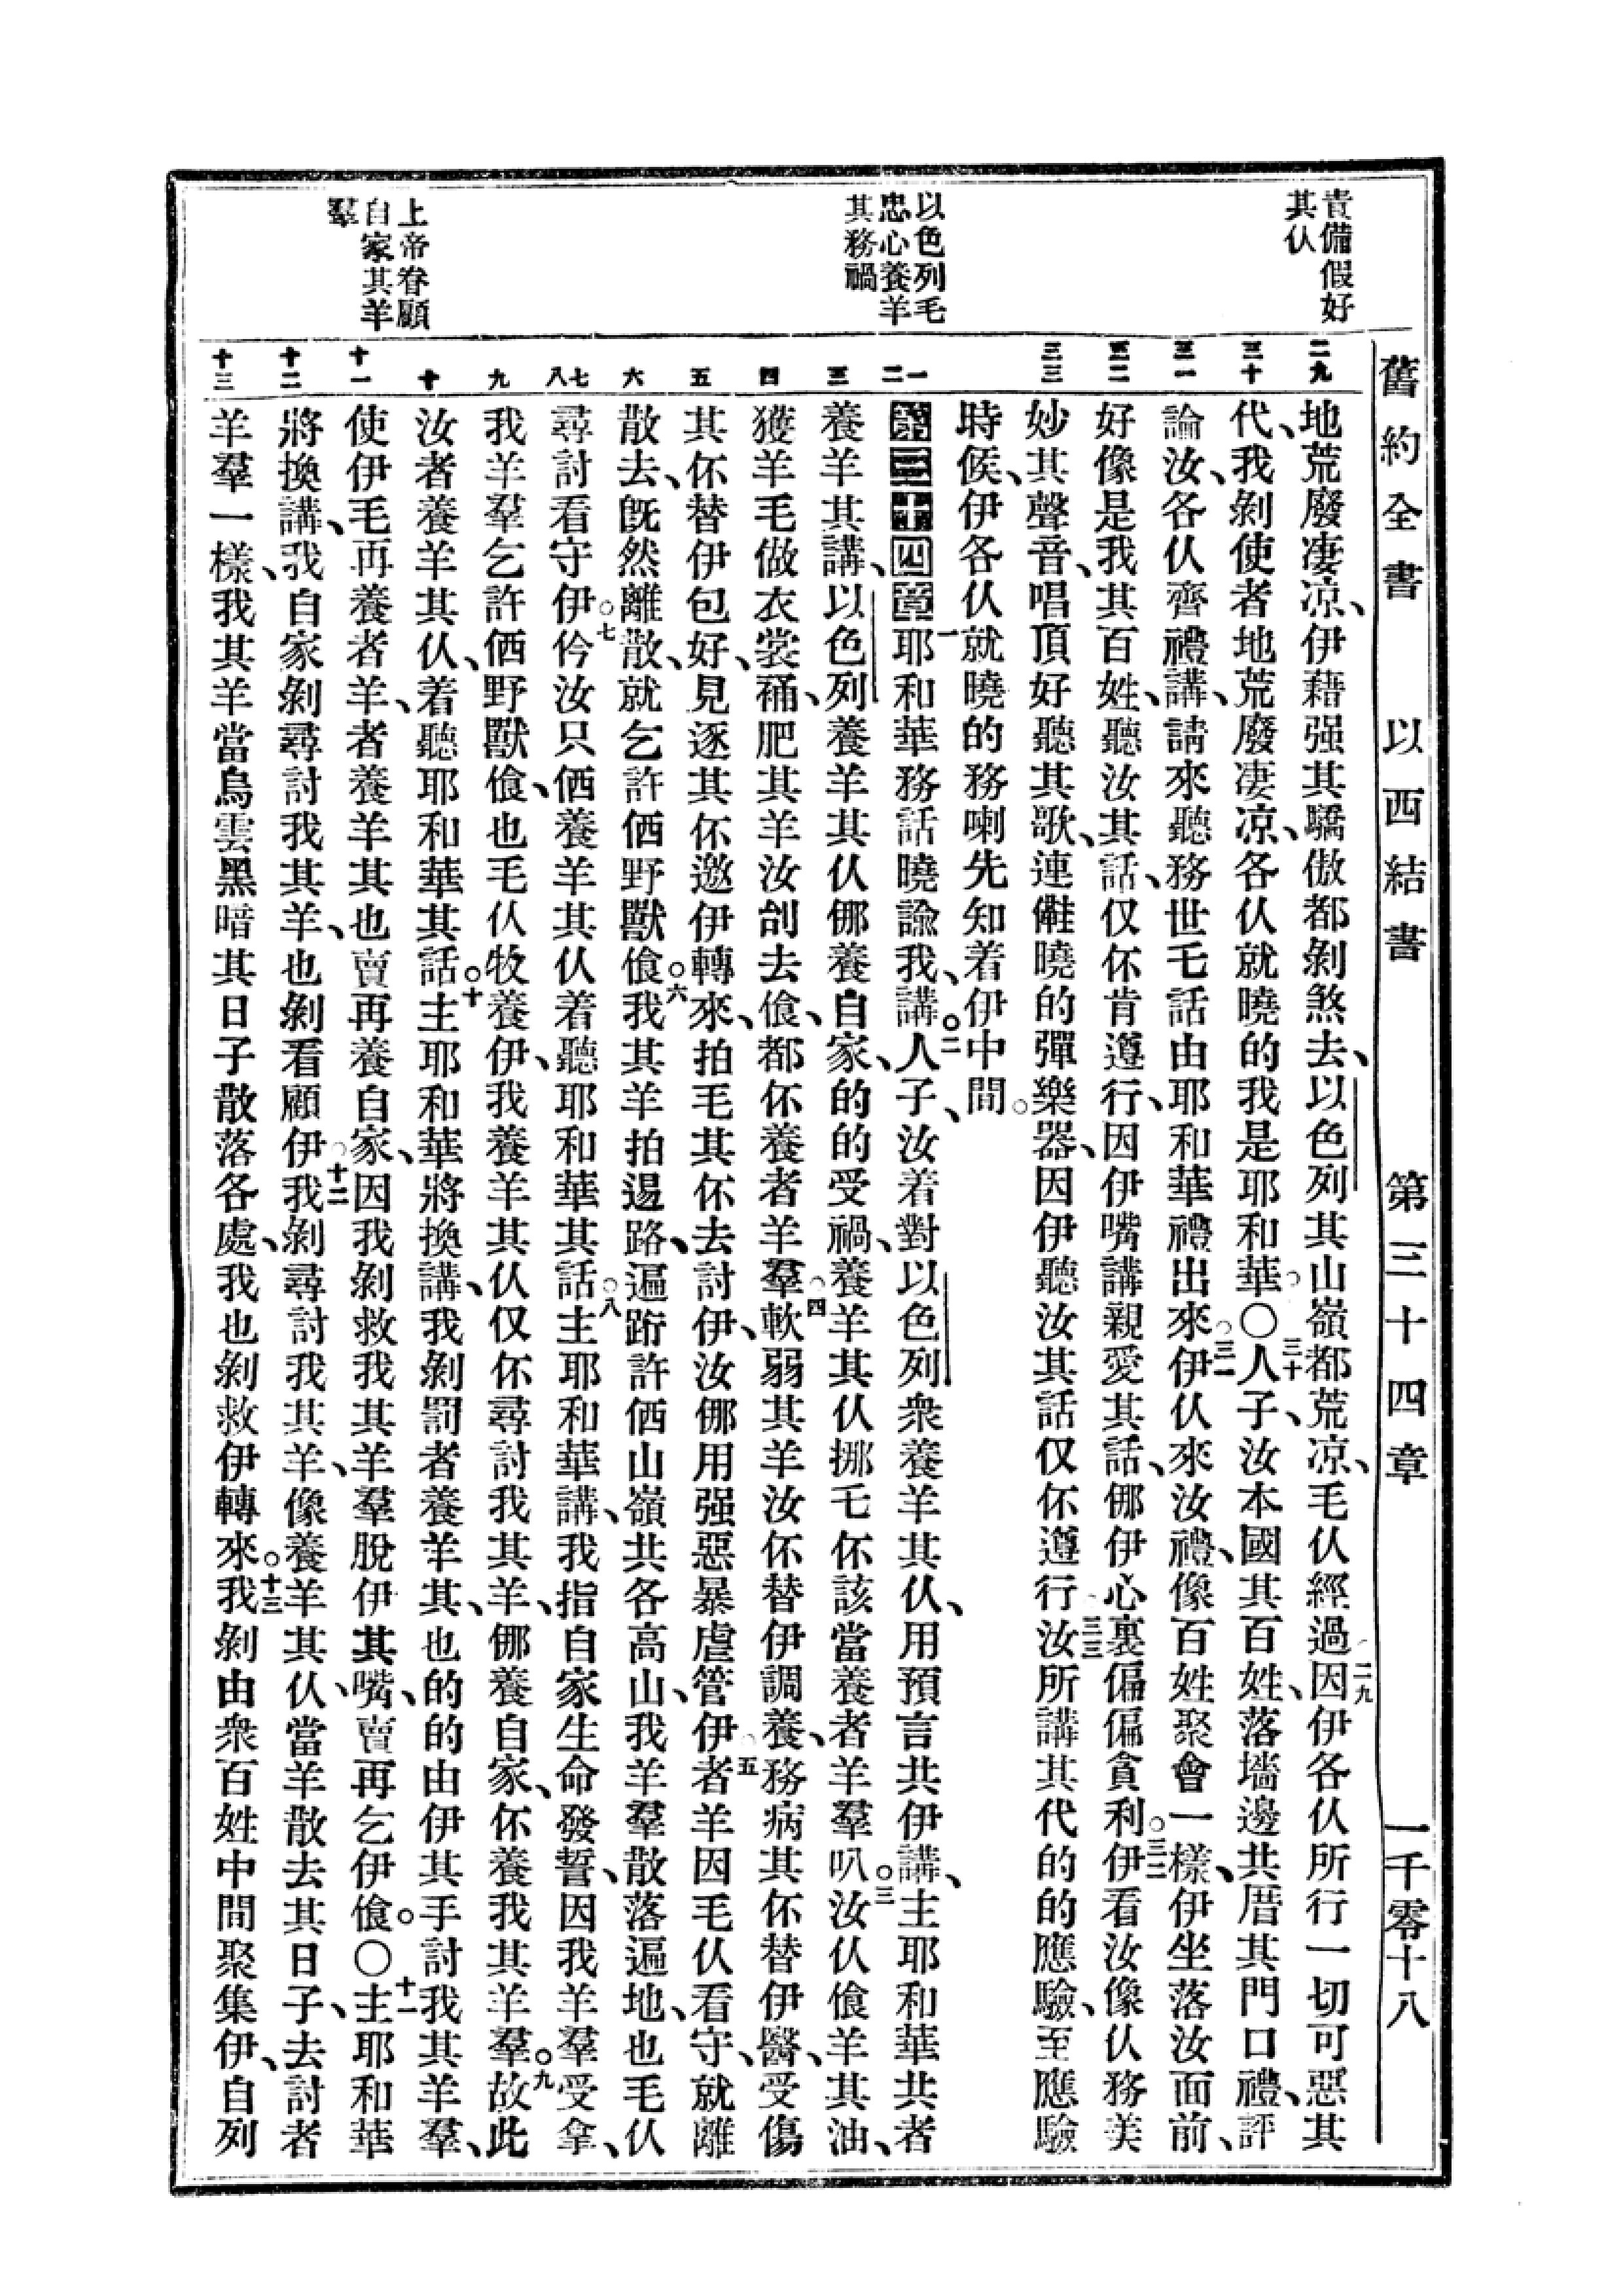 舊約全書 以西結書 第三十四章 一千零十八
責備假好
其仈
以色列毛
忠心養羊
其務禍
上帝眷顧
自家其羊
羣
二九
三十
三一
三二
三三
一
二
三
四
五
六
七
八
九
十
十一
十二
十三
地荒廢凄凉、伊藉强其驕傲都剝煞去、以色列其山嶺都荒凉、毛仈經過○二九因伊各仈所行一切可惡其
代、我剝使者地荒廢凄凉、各仈就曉的我是耶和華○〇三十人子、汝本國其百姓、落墻邊共厝其門口禮、評
論汝、各仈齊禮講、請來聽務世乇話由耶和華禮出來○三一伊仈來汝禮、像百姓聚會一樣、伊坐落汝面前、
好像是我其百姓、聽汝其話、仅伓肯遵行、因伊嘴講親愛其話、㑚伊心裏偏偏貪利○三二伊看汝像仈務美
妙其聲音、唱頂好聽其歌、連㑽曉的彈樂器、因伊聽汝其話仅伓遵行○三三汝所講其代的的應驗、至應驗
時候、伊各仈就曉的務喇先知着伊中間○
第三十四章一耶和華務話曉諭我、講○二人子、汝着對以色列衆養羊其仈、用預言共伊講、主耶和華共者
養羊其講、以色列養羊其仈㑚養自家、的的受禍、養羊其仈挪乇伓該當養者羊羣叭○三汝仈飡羊其油、
獲羊毛做衣裳𧚔、肥其羊汝刣去飡、都伓養者羊羣○四軟弱其羊汝伓替伊調養、務病其伓替伊醫、受傷
其伓替伊包好、見逐其伓邀伊轉來、拍毛其伓去討伊、汝㑚用强惡暴虐管伊○五者羊因毛仈看守、就離
散去、旣然離散、就乞許㑆野獸飡○六我其羊拍逿路、遍跡許㑆山嶺共各高山、我羊羣散落遍地、也毛仈
尋討看守伊○七伶汝只㑆養羊其仈着聽耶和華其話○八主耶和華講、我指自家生命發誓、因我羊羣受拿、
我羊羣乞許㑆野獸飡、也毛仈牧養伊、我養羊其仈仅伓尋討我其羊、㑚養自家、伓養我其羊羣○九故此
汝者養羊其仈、着聽耶和華其話○十主耶和華將換講、我剝罰者養羊其、也的的由伊其手討我其羊羣、
使伊毛再養者羊、者養羊其也賣再養自家、因我剝救我其羊羣脫伊其嘴、賣再乞伊飡○〇十一主耶和華
將換講、我自家剝尋討我其羊、也剝看顧伊○十二我剝尋討我其羊、像養羊其仈、當羊散去其日子、去討者
羊羣一樣、我其羊當烏雲黑暗其日子散落各處、我也剝救伊轉來○十三我剝由衆百姓中間聚集伊、自列